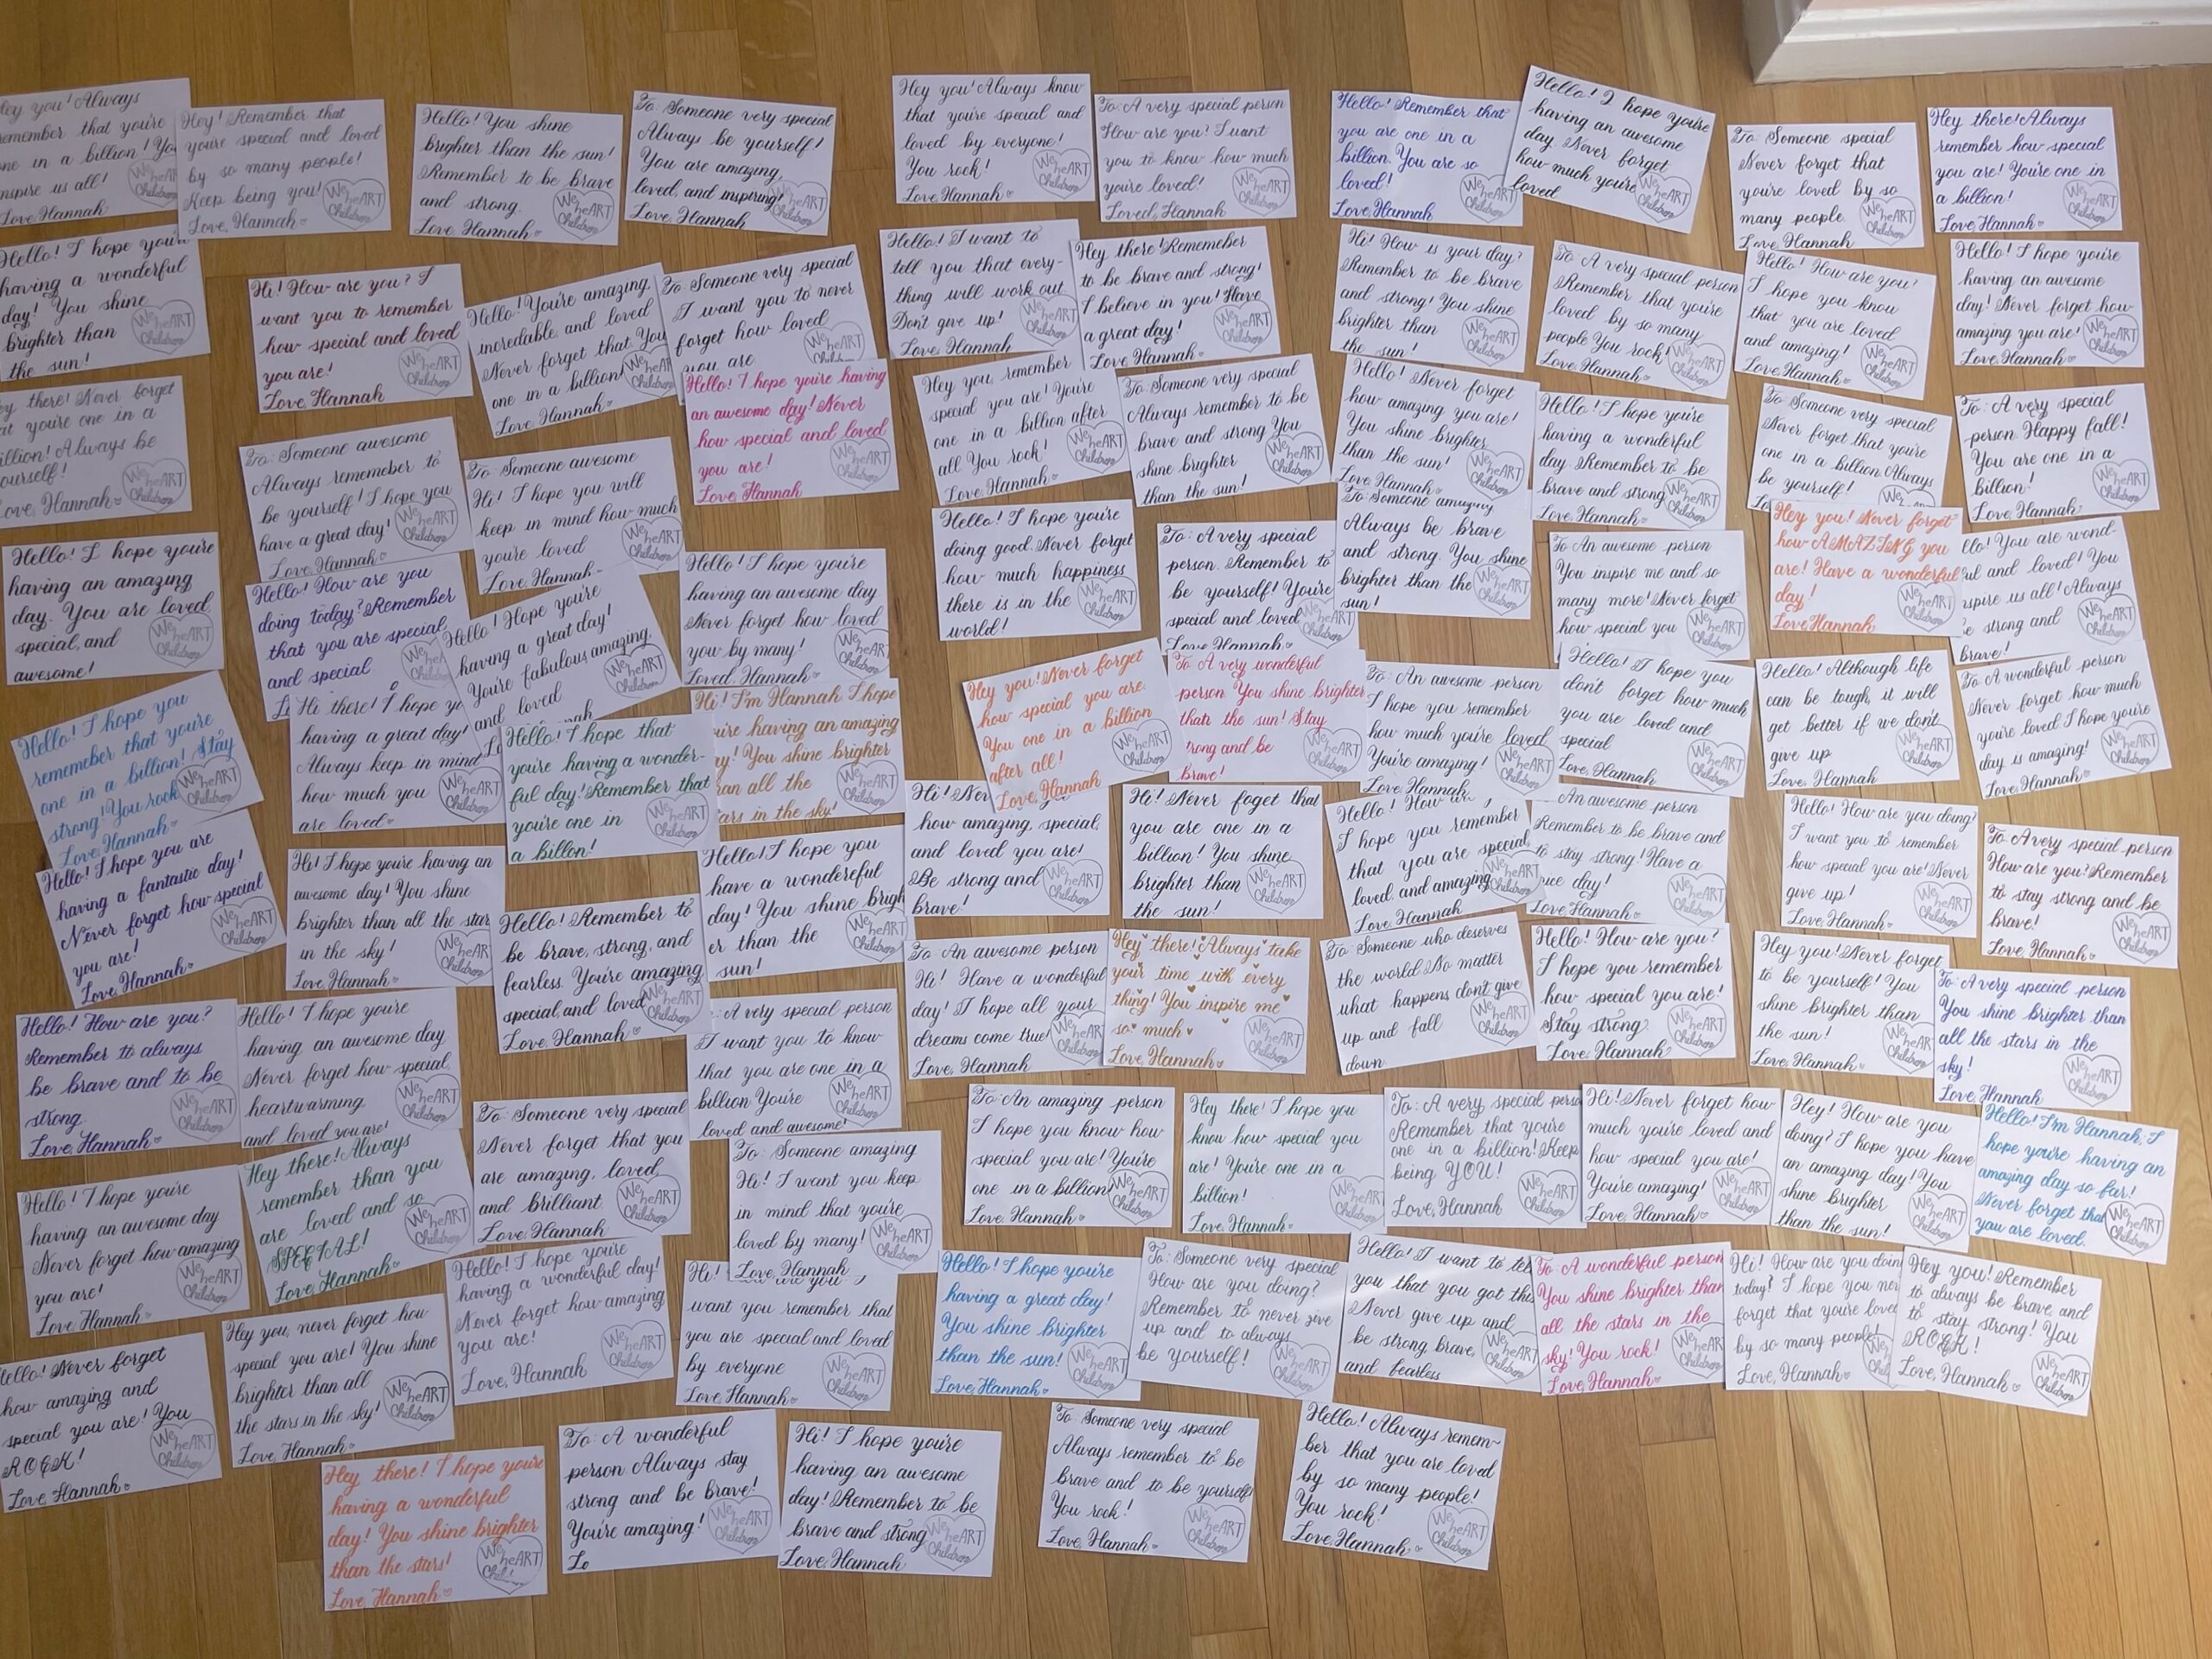 Hey you! Always
remember that you're
one in a billion! You
inspire us all!
Love Hannah
We heART Children
Hey! Remember that
you're special and loved
by so many people!
Keep being you!
Love, Hannah
We heART Children
Hello! You shine
brighter than the sun!
Remember to be brave
and strong.
Love Hannah
We heART Children
To: Someone very special
Always be yourself!
You are amazing,
loved, and inspiring!
Love, Hannah
We heART Children
Hey you! Always know
that you're special and
loved by everyone!
You rock!
Love Hannah
We heART Children
To: A very special person
How are you? I want
you to know how much
you're loved!
Loved, Hannah
We heART Children
Hello! Remember that
you are one in a
billion. You are so
loved!
Love, Hannah
We heART Children
Hello! I hope you're
having an awesome
day. Never forget
how much you're
loved
We heART Children
To: Someone special
Never forget that
you're loved by so
many people.
Love Hannah
We heART Children
Hey there! Always
remember how special
you are! You're one in
a billion!
Love, Hannah
We heART Children
Hello! I hope you're
having a wonderful
day! You shine
brighter than
the sun!
We heART Children
Hi! How are you? I
want you to remember
how special and loved
you are!
Love, Hannah
We heART Children
Hello! You're amazing,
incredable, and loved
Never forget that You
one in a billion
Love Hannah
We heART Children
To Someone very special
I want you to never
forget how loved
you are
We heART Children
Hello! I want to
tell you that every-
thing will work out.
Don't give up!
Love, Hannah
We heART Children
Hey there! Rememeber
to be brave and strong!
I believe in you! Have
a great day!
Love, Hannah
We heART Children
Hi! How is your day?
Remember to be brave
and strong! You shine
brighter than
the sun!
We heART Children
To: A very special person
Remember that you're
loved by so many
people You rock!
Love, Hannah
We heART Children
Hello! How are you?
I hope you know
that you are loved
and amazing!
Love, Hannah
We heART Children
Hello! I hope you're
having an awesome
day! Never forget how
amazing you are!
Love, Hannah
We heART Children
there! Never forget
you're one in a
billion! Always be
yourself!
Love, Hannah
We heART Children
To: Someone awesome
Always rememeber to
be yourself! I hope you
have a great day!
Love, Hannah
We heART Children
To: Someone awesome
Hi! I hope you will
keep in mind how much
you're loved
Love, Hannah
We heART Children
Hello! I hope you're having
an awesome day! Never
how special and loved
you are!
Love Hannah
We heART Children
Hey you, remember
special you are! You're
one in a billion after
all You rock!
Love Hannah
We heART Children
To: Someone very special
Always remember to be
brave and strong You
shine brighter
than the sun!
We heART Children
Hello! Never forget
how amazing you are!
You shine brighter
than the sun!
Love, Hannah
We heART Children
Hello! I hope you're
having a wonderful
day Remember to be
brave and strong
Love, Hannah
We heART Children
To: Someone very special
Never forget that you're
one in a billion Always
be yourself!
We
To: A very special
person Happy fall!
You are one in a
billion!
Love, Hannah
We heART Children
Hello! I hope you're
having an amazing
day. You are loved,
special, and
awesome!
We heART Children
Hello! How are you
doing today? Remember
that you are special,
and special
Hello! Hope you're
having a great day!
You're fabulous amazing,
and loved
We heART Children
Hello! I hope you're
having an awesome day
Never forget how loved
you by many!
Loved, Hannah
We heART Children
Hello! I hope you're
doing good. Never forget
how much happiness
there is in the
world!
We heART Children
To: A very special
person. Remember to
be yourself! You're
special and loved
Love, Hannah
We heART Children
To: Someone amazing
Always be brave
and strong. You shine
brighter than the
sun!
We heART Children
To An awesome person
You inspire me and so
many more! Never forget
how special you
We heART Children
Hey you! Never forget
how AMAZING you
are! Have a wonderful
day!
Love Hannah
We heART Children
You are wond-
and loved! You
inspire us all! Always
strong and
brave!
We heART Children
Hello! I hope you
rememeber that you're
one in a billion! Stay
strong! You rock
Love Hannah
We heART Children
Hi there! I hope
having a great day!
Always keep in mind
how much you
are loved
We heART Children
Hello! I hope that
you're having a wonder-
ful day! Remember that
you're one in
a billon!
We heART Children
Hi! I'm Hannah I hope
having an amazing
You shine brighter
than all the
stars in the sky!
We heART Children
Hey you! Never forget
how special you are.
You one in a billion
after all!
Love, Hannah
We heART Children
To A very wonderful
person You shine brighter
the sun! Stay
strong and be
brave!
We heART Children
To: An awesome person
I hope you remember
how much you're loved
You're amazing!
Love, Hannah
We heART Children
Hello! I hope you
don't forget how much
you are loved and
special
Love, Hannah
We heART Children
Hello! Although life
can be tough, it will
get better if we don't
give up
Love, Hannah
We heART Children
To: A wonderful person
Never forget how much
you're loved I hope you're
day is amazing!
Love, Hannah
We heART Children
Hello! I hope you are
having a fantastic day!
Never forget how special
you are!
Love, Hannah
We heART Children
Hi! I hope you're having an
awesome day! You shine
brighter than all the star
in the sky!
Love, Hannah
We heART Children
Hello! Remember to
be brave, strong, and
fearless. You're amazing
special, and loved
Love, Hannah
We heART Children
Hello! I hope you
have a wondereful
day! You shine brigh
er than the
sun!
We heART Children
Hi! Nev
how amazing, special,
and loved you are!
Be strong and
brave!
We heART Children
Hi! Never foget that
you are one in a
billion! You shine
brighter than
the sun!
We heART Children
Hello! How
I hope you remember
that you are special,
loved, and amazing
Love, Hannah
We heART Children
An awesome person
Remember to be brave and
to stay strong! Have a
nice day!
Love, Hannah
We heART Children
Hello! How are you doing?
I want you to remember
how special you are! Never
give up!
Love, Hannah
We heART Children
To: A very special person
How are you? Remember
to stay strong and be
brave!
Love, Hannah
We heART Children
Hello! How are you?
Remember to always
be brave and to be
strong.
Love Hannah
We heART Children
Hello! I hope you're
having an awesome day
Never forget how special,
heartwarming
and loved you are!
We heART Children
A very special person
I want you to know
that you are one in a
billion You're
loved and awesome!
We heART Children
To: An awesome person
Hi! Have a wonderful
day! I hope all your
dreams come true
Love, Hannah
We heART Children
Hey there! Always take
your time with every
thing! You inspire me
so much
Love Hannah
We heART Children
To Someone who deserves
the world No matter
what happens don't give
up and fall
down
We heART Children
Hello! How are you?
I hope you remember
how special you are!
Stay strong.
Love Hannah
We heART Children
Hey you! Never forget
to be yourself! You
shine brighter than
the sun!
Love, Hannah
We heART Children
To: A very special person
You shine brighter than
all the stars in the
sky!
Love, Hannah
We heART Children
Hello! I hope you're
having an awesome day
Never forget how amazing
you are!
Love, Hannah
We heART Children
Hey there! Always
remember than you
are loved and so
SPECIAL!
Love Hannah
We heART Children
To: Someone very special
Never forget that you
are amazing, loved,
and brilliant.
Love, Hannah
We heART Children
To: Someone amazing
Hi! I want you keep
in mind that you're
loved by many!
Love, Hannah
We heART Children
To: An amazing person
I hope you know how
special you are! You're
one in a billion
Love, Hannah
We heART Children
Hey there! I hope you
know how special you
are! You're one in a
billion!
Love, Hannah
We heART Children
To: A very special perso
Remember that you're
one in a billion! Keep
being YOU!
Love, Hannah
We heART Children
Hi! Never forget how
much you're loved and
how special you are!
You're amazing!
Love, Hannah
We heART Children
Hey! How are you
doing? I hope you have
an amazing day! You
shine brighter
than the sun!
We heART Children
Hello! I'm Hannah, I
hope you're having an
amazing day so far!
Never forget that
you are loved.
We heART Children
Hello! Never forget
how amazing and
special you are! You
ROCK!
Love, Hannah
We heART Children
Hey you, never forget how
special you are! You shine
brighter than all
the stars in the sky!
Love, Hannah
We heART Children
Hello! I hope you're
having a wonderful day!
Never forget how amazing
you are!
Love, Hannah
We heART Children
Hi!
want you remember that
you are special and loved
by everyone
Love, Hannah
We heART Children
Hello! I hope you're
having a great day!
You shine brighter
than the sun!
Love, Hannah
We heART Children
To: Someone very special
How are you doing?
Remember to never give
up and to always
be yourself!
We heART Children
Hello! I want to tel
you that you got this
Never give up and
be strong, brave,
and fearless
We heART Children
To: A wonderful person
You shine brighter than
all the stars in the
sky! You rock!
Love, Hannah
We heART Children
Hi! How are you doin
today? I hope you ne
forget that you're loved
by so many people!
Love, Hannah
Hey you! Remember
to always be brave and
to stay strong! You
ROCK!
Love, Hannah
We heART Children
Hey there! I hope you're
having a wonderful
day! You shine brighter
than the stars!
Love, Hannah
We heART Children
To: A wonderful
person Always stay
strong and be brave!
You're amazing!
Lo
We heART Children
Hi! I hope you're
having an awesome
day! Remember to be
brave and strong
Love, Hannah
We heART Children
To Someone very special
Always remember to be
brave and to be yourself!
You rock!
Love, Hannah
We heART Children
Hello! Always remem-
ber that you are loved
by so many people!
You rock!
Love, Hannah
We heART Children